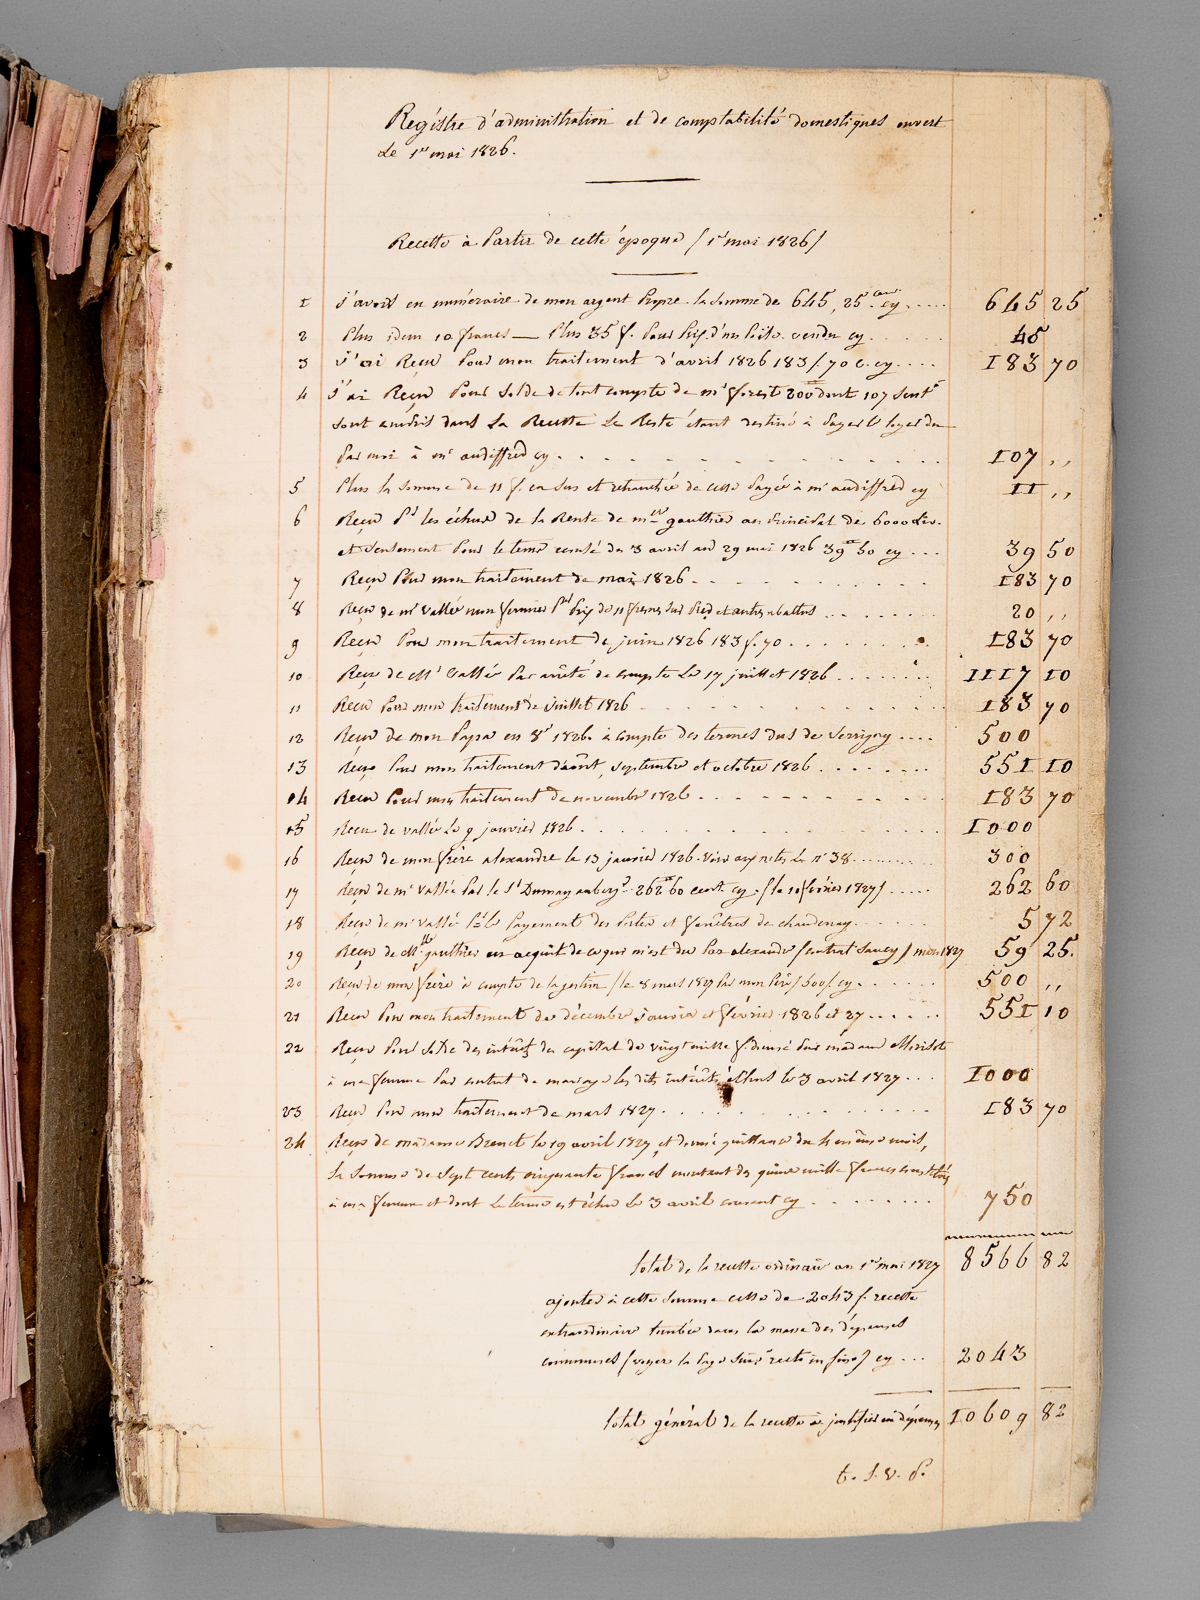 Registre d'administration et de comptabilité domestiques ouvert
Le 1er mai 1826.
Recette à Partir de cette époque / 1er mai 1826 /
1 J'avois en numéraire de mon argent Propre la somme de 645, 25 cent. cy .... 645 25
2 Plus idem 10 francs — Plus 35 f. Pour Prix d'un vendu cy ...... 45
3 J'ai Reçu Pour mon traitement d'avril 1826 183 f. 70 c. cy .... 183 70
4 J'ai Reçu Pour Solde de tout compte de mr forest 200 dont 107 Seult
sont dans La Recette Le Reste étant destiné à Payer le loyer du
Par moi à mr audiffred cy ... 107 ,,
5 Plus la Somme de 11 f. en sus et retranchée de celle Payée à mr audiffred cy 11 ,,
6 Reçu Pr les échus de la Rente de gauthier au Principal de 6000 Liv.
et Seulement Pour le tems du 3 avril au 29 mai 1826 39 50 cy ... 39 50
7 Reçu Pour mon traitement de mai 1826 ........ 183 70
8 Reçu de mr vallée mon fermier Pr Prix de 11 frênes sur Pied et autres abattus ....... 20 ,,
9 Reçu Pour mon traitement de juin 1826 183 f. 70 ....... 183 70
10 Reçu de Mr Vallée Par arrêté de compte Le 17 juillet 1826 ........ 1117 10
11 Reçu Pour mon traitement de juillet 1826 ......... 183 70
12 Reçu de mon Papa en 1826. à compte des termes dus de Serrigny .... 500
13 Reçu Pour mon traitement d'août, septembre et octobre 1826 ....... 551 10
14 Reçu Pour mon traitement de novembre 1826 ........ 183 70
15 Reçu de vallée Le 9 janvier 1826 ........ 1000
16 Reçu de mon frère alexandre le 13 janvier 1826. Voir le n° 38 ........ 300
17 Reçu de mr Vallée Par le Sr 262 60 cent. cy. / le 10 février 1827 / ..... 262 60
18 Reçu de mr vallé Pr le Payement des Portes et fenêtres de chaudenay ...... 5 72
19 Reçu de Mlle gauthier en acquit de ce qui m'est du Par alexandre / contrat Sancy / mars 1827 59 25.
20 Reçu de mon frère à compte de la gestion / le 8 mars 1827 Par mon Père / 500 f. cy ...... 500 ,,
21 Reçu Pour mon traitement de décembre, Janvier et février 1826 et 27 ...... 551 10
22 Reçu Pour Solde des intérêts du capital de vingt mille f. donné Par madame
à ma femme Par contrat de mariage les dits intérêts échus le 3 avril 1827 ... 1000
23 Reçu Pour mon traitement de mars 1827 ......... 183 70
24 Reçu de madame Benoit le 19 avril 1827, et donné quittance du même mois,
la Somme de Sept cents cinquante francs montant des quinze mille francs constitués
à ma femme et dont Le terme est échu Le 3 avril courant cy ........ 750
total de la recette ordinaire au 1er mai 1827 8566 82
ajoutez à cette Somme celle de 2043 f. recette
extraordinaire tombée dans la masse des dépenses
communes / voyez la Page Suivte recto in fine / cy ... 2043
total général de la recette à justifier en dépenses 10609 82
t. s. v. p.